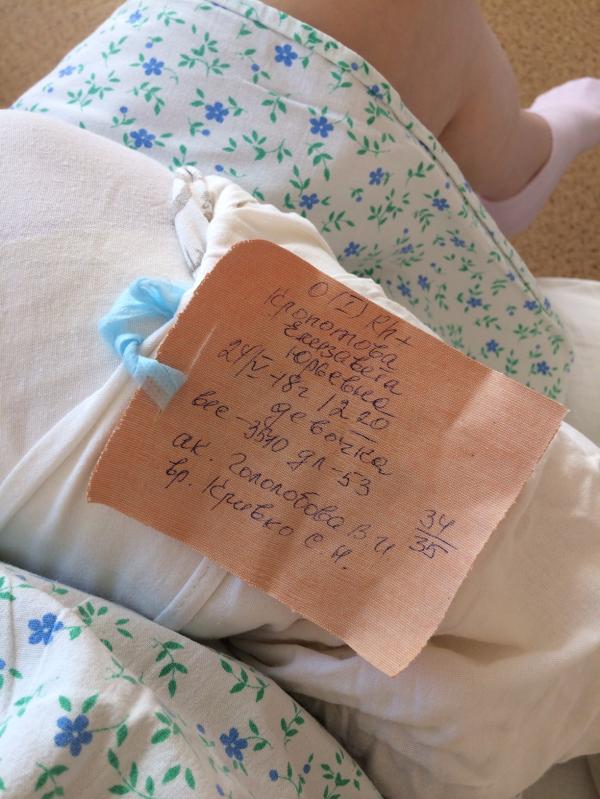 O (I) Rh+
Кропотова
Елизавета
Юрьевна
24/V-18г 12 20
девочка
вес - 3510 дл - 53
ак. Гололобова В И 34/35
вр. Кривко С. Н.